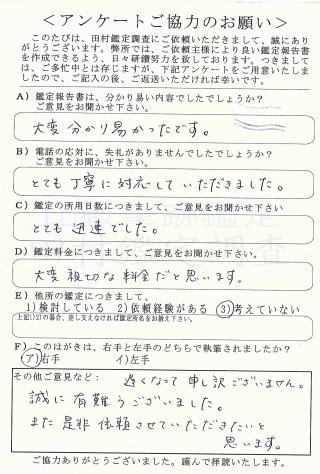 ＜アンケートご協力のお願い＞
このたびは、田村鑑定調査にご依頼いただきまして、誠にあり
がとうございます。弊所では、ご依頼主様により良い鑑定報告書
を作成できるよう、日々研鑽努力を致しております。つきまして
は、ご多忙中とは存じますが、下記アンケートをご用意いたしま
したので、ご記入の後、ご返送いただければ幸いです。
A）鑑定報告書は、分かり易い内容でしたでしょうか？
ご意見をお聞かせ下さい。
大変分かり易かったです。
B）電話の応対に、失礼がありませんでしたでしょうか？
ご意見をお聞かせ下さい。
とても丁寧に対応していただきました。
C）鑑定の所用日数につきまして、ご意見をお聞かせ下さい
とても迅速でした。
D）鑑定料金につきまして、ご意見をお聞かせ下さい。
大変親切な料金だと思います。
E）他所の鑑定につきまして、
1)検討している 2)依頼経験がある 3)考えていない
上記(2)の場合、差し支えなければ鑑定所名をお教え下さい。
F）このはがきは、右手と左手のどちらで執筆されましたか？
ア)右手 イ)左手
その他ご意見など：
遅くなって申し訳ございません。
誠に有難うございました。
また是非依頼させていただきたいと
思います。
ご協力ありがとうございました。謹んで拝読いたします。